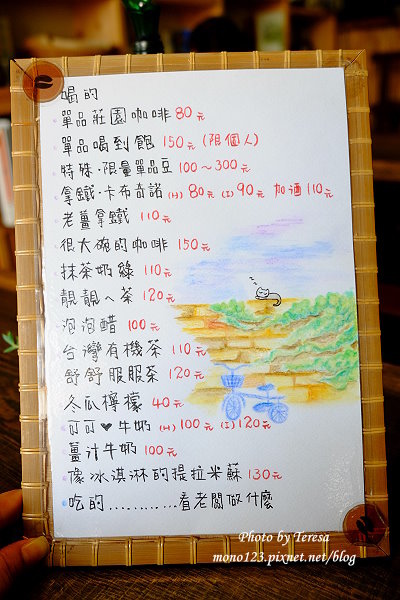 喝的
單品莊園咖啡 80元
單品喝到飽 150元 (限個人)
特殊·限量單品豆 100～300元
拿鐵·卡布奇諾 (H) 80元 (I) 90元 加酒 110元
老薑拿鐵 110元
很大碗的咖啡 150元
抹茶奶綠 110元
靚靚ㄟ茶 120元
泡泡醋 100元
台灣有機茶 110元
舒舒服服茶 120元
冬瓜檸檬 40元
可可♥牛奶 (H) 100元 (I) 120元
薑汁牛奶 100元
像冰淇淋的提拉米蘇 130元
吃的............看老闆做什麼
z z z
Photo by Teresa
mono123.pixnet.net/blog